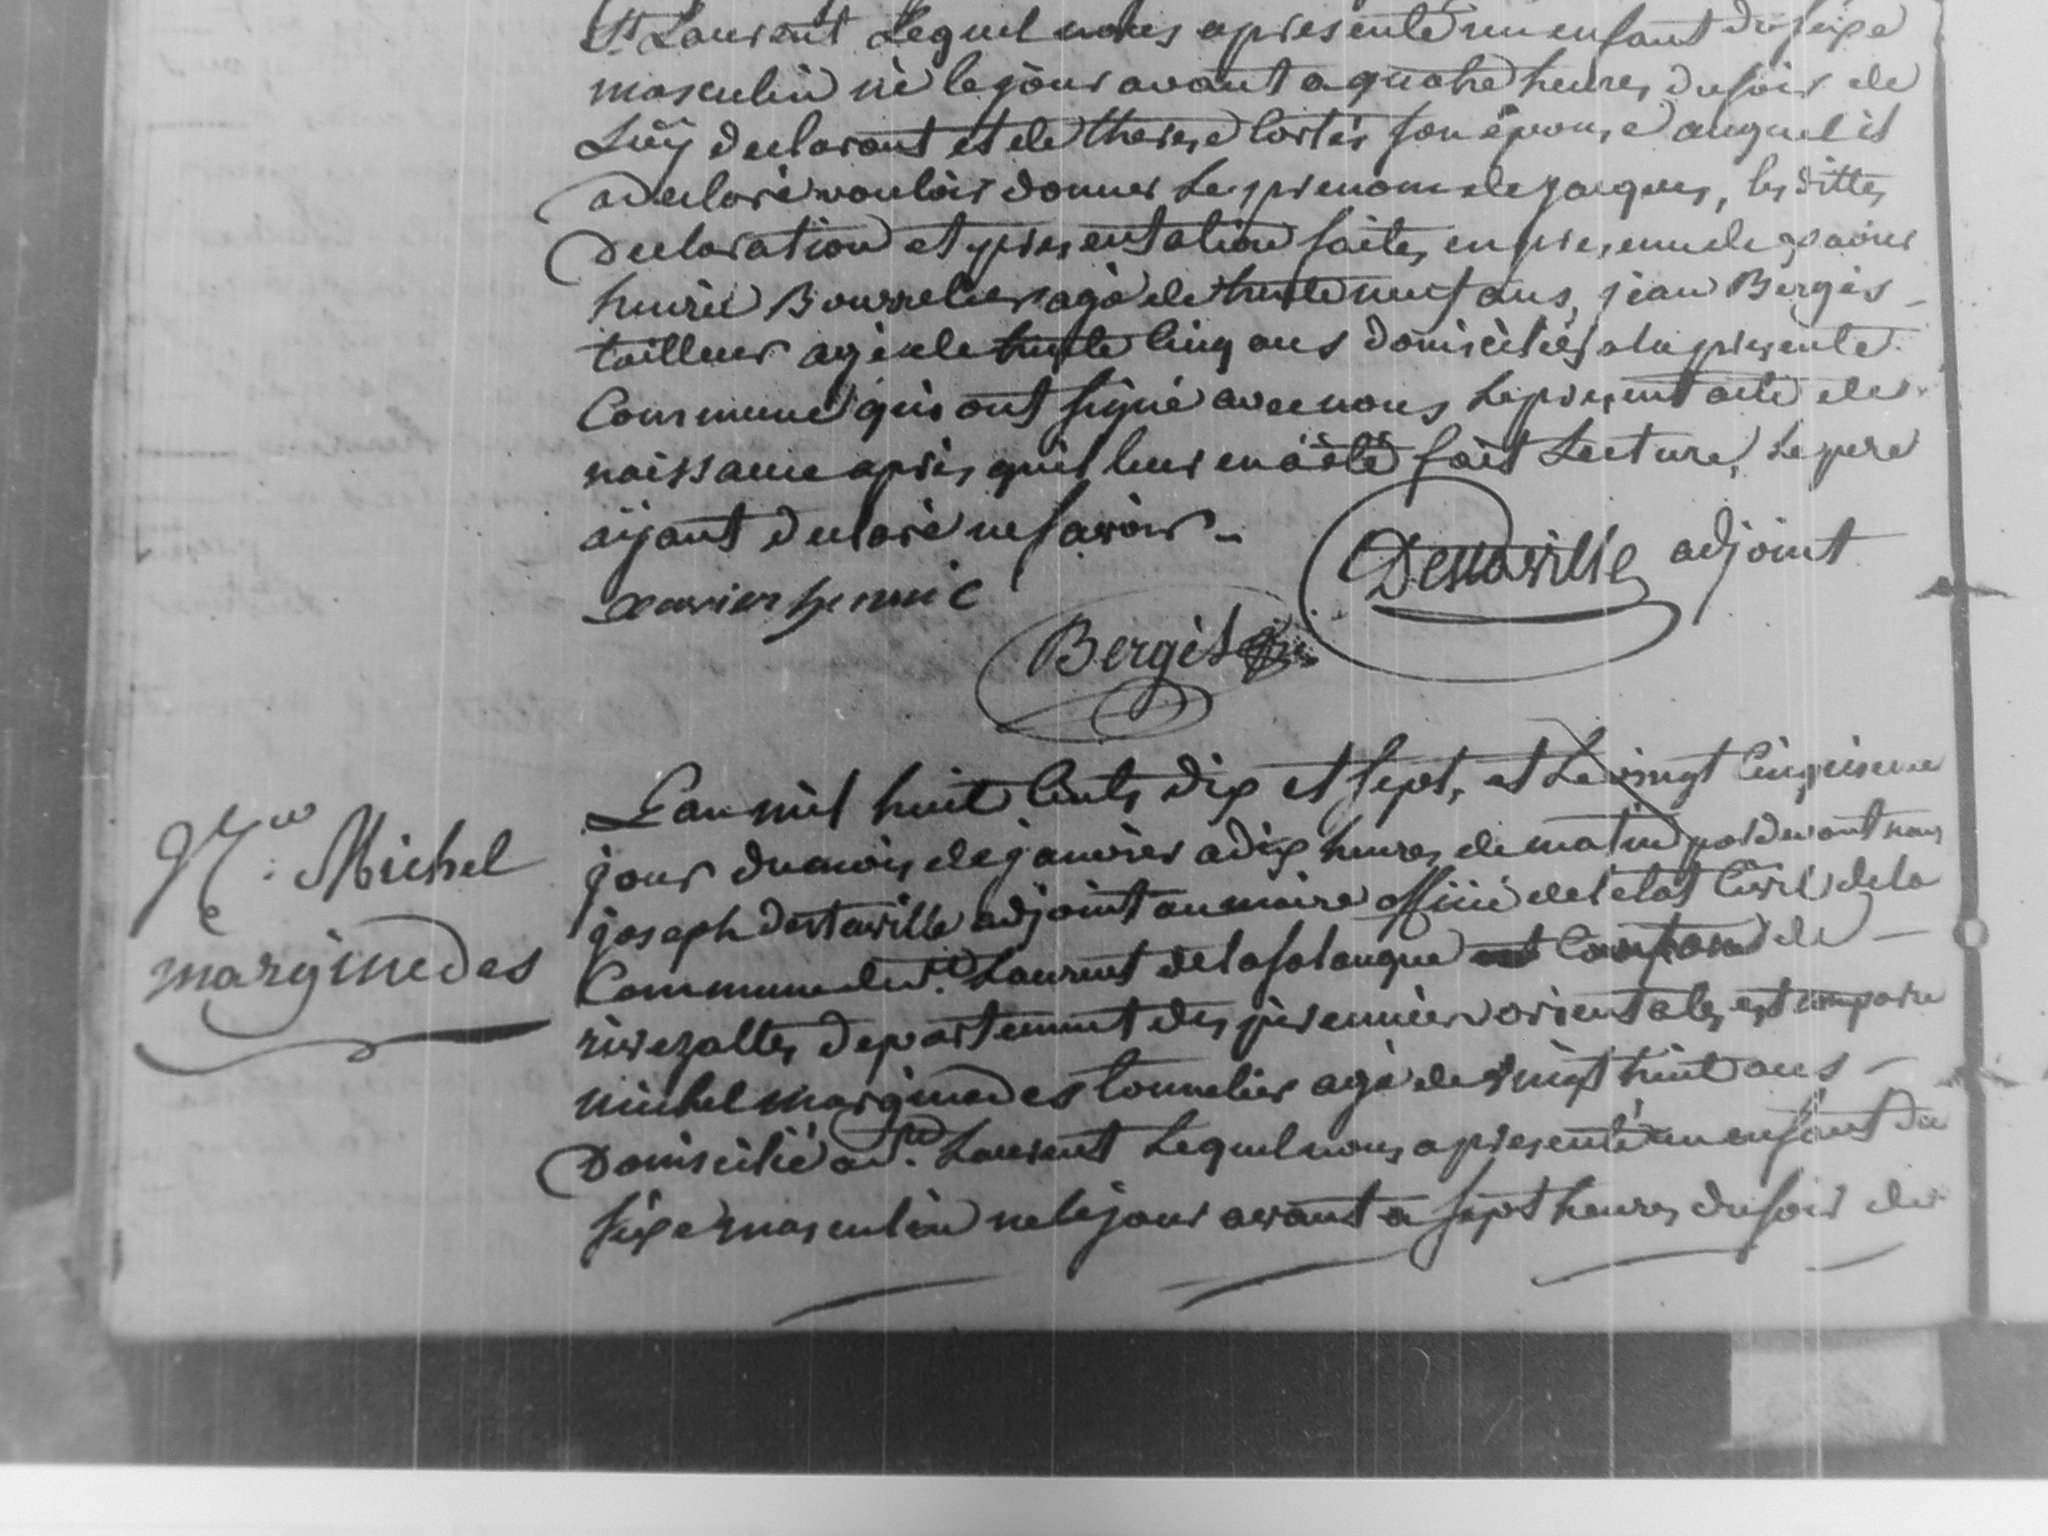 St Laurent Lequel nous a presenté un enfant du sèxe
masculin nè le jour avant a quatre heures du soir de
Luÿ declarant et de therese Cortès son épouse auquel il
a declaré vouloir donner Les prenom de jacques, les dittes
Declaration et presentation faites en presence de xavier
henric Bourrelier agé de trente neuf ans, jean Bergès
tailleur agé de trente Cinq ans domiciliés a la presente
Commune qui ont signé avec nous Le present acte de
naissance après quil leur en a été fait Lecture, Le pere
aÿant declaré ne savoir -
xavier henric
Bergès
Destaville adjoint
Nce. Michel
marginedes
L'an mil huit Cents dix et sept, et Le vingt Cinquieme
jour du mois de janvier a dix heures de matin pardevant nous
joseph destaville adjoint au maire officié de l'état Civil de la
Commune de st. Laurent de la salanque Canton de
rivezaltes departement des pirennées orientales est comparu
michel marginedes tonnelier agé de vingt huit ans
Domicilié a st. Laurent Lequel nous a presenté un enfant du
sèxe masculin né le jour avant a sept heures du soir de